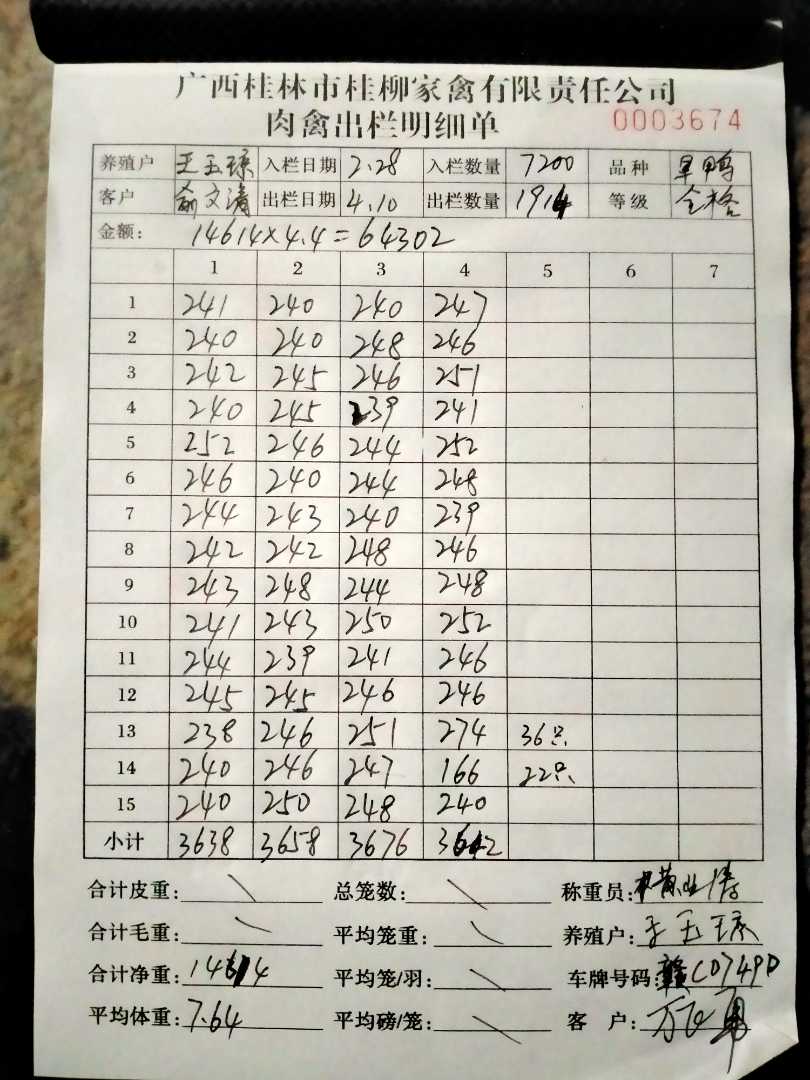 广西桂林市桂柳家禽有限责任公司
肉禽出栏明细单 0003674
养殖户 王玉琼 入栏日期 2.28 入栏数量 7200 品种 旱鸭
客户 俞文清 出栏日期 4.10 出栏数量 1914 等级 合格
金额: 14614×4.4=64302
1 2 3 4 5 6 7
1 241 240 240 247
2 240 240 248 246
3 242 245 246 251
4 240 245 239 241
5 252 246 244 252
6 246 240 244 248
7 244 243 240 239
8 242 242 248 246
9 243 248 244 248
10 241 243 250 252
11 244 239 241 246
12 245 245 246 246
13 238 246 251 274 36只
14 240 246 247 166 22只
15 240 250 248 240
小计 3638 3658 3676 3642
合计皮重: 总笼数: 称重员:
合计毛重: 平均笼重: 养殖户: 王玉琼
合计净重: 14614 平均笼/羽: 车牌号码: 赣CD749D
平均体重: 7.64 平均磅/笼: 客 户: